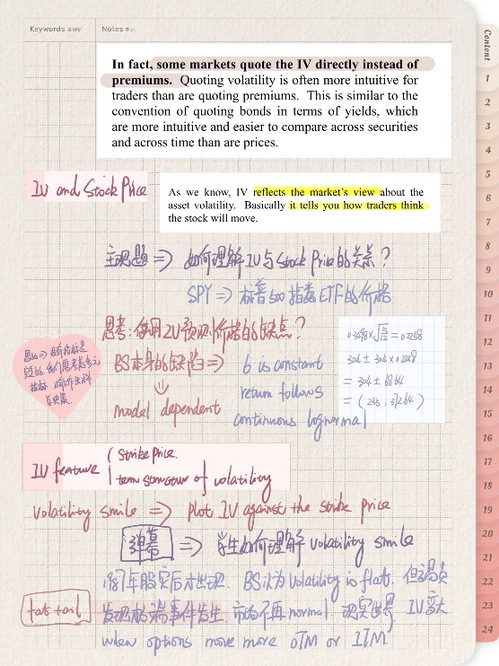 Keywords
Notes
In fact, some markets quote the IV directly instead of
premiums. Quoting volatility is often more intuitive for
traders than are quoting premiums. This is similar to the
convention of quoting bonds in terms of yields, which
are more intuitive and easier to compare across securities
and across time than are prices.
IV and Stock Price
As we know, IV reflects the market's view about the
asset volatility. Basically it tells you how traders think
the stock will move.
主观题 => 如何理解IV与Stock Price的关系?
SPY => 标普500指数ETF的价格
思考:使用IV预测价格的缺点?
BS本身的缺陷 => 6 is constant
model dependent
return follows
continuous lognormal
IV feature
Strike Price.
term structure of volatility
volatility smile => plot IV against the strike price
弹幕 => 学生如何理解 volatility smile
87年股灾后才出现. BS认为 Volatility is flat, 但
fat tail
发现极端事件发生 市场不再normal 现实世界 IV
when options move more OTM or ITM
Content
1
2
3
4
5
6
7
8
9
10
11
12
13
14
15
16
17
18
19
20
21
22
23
24